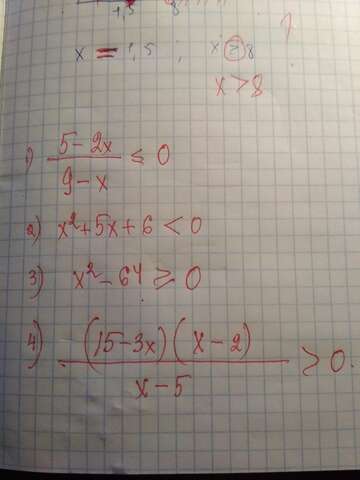 1,5 8
x = 1,5 ; x ≥ 8
x > 8
1) (5 - 2x)/(9 - x) ≤ 0
2) x² + 5x + 6 < 0
3) x² - 64 ≥ 0
4) (15 - 3x)(x - 2)/(x - 5) > 0.